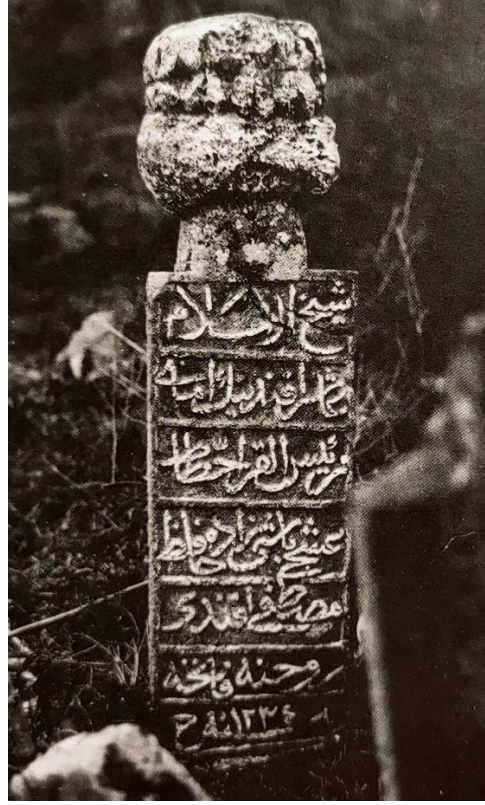 شيخ الاسلام
افندينك امامى
رئيس القرا خطاط
عشجى باشى زاده حافظ
مصطفى افندى
روحنه فاتحه
سنه ١٢٣٤